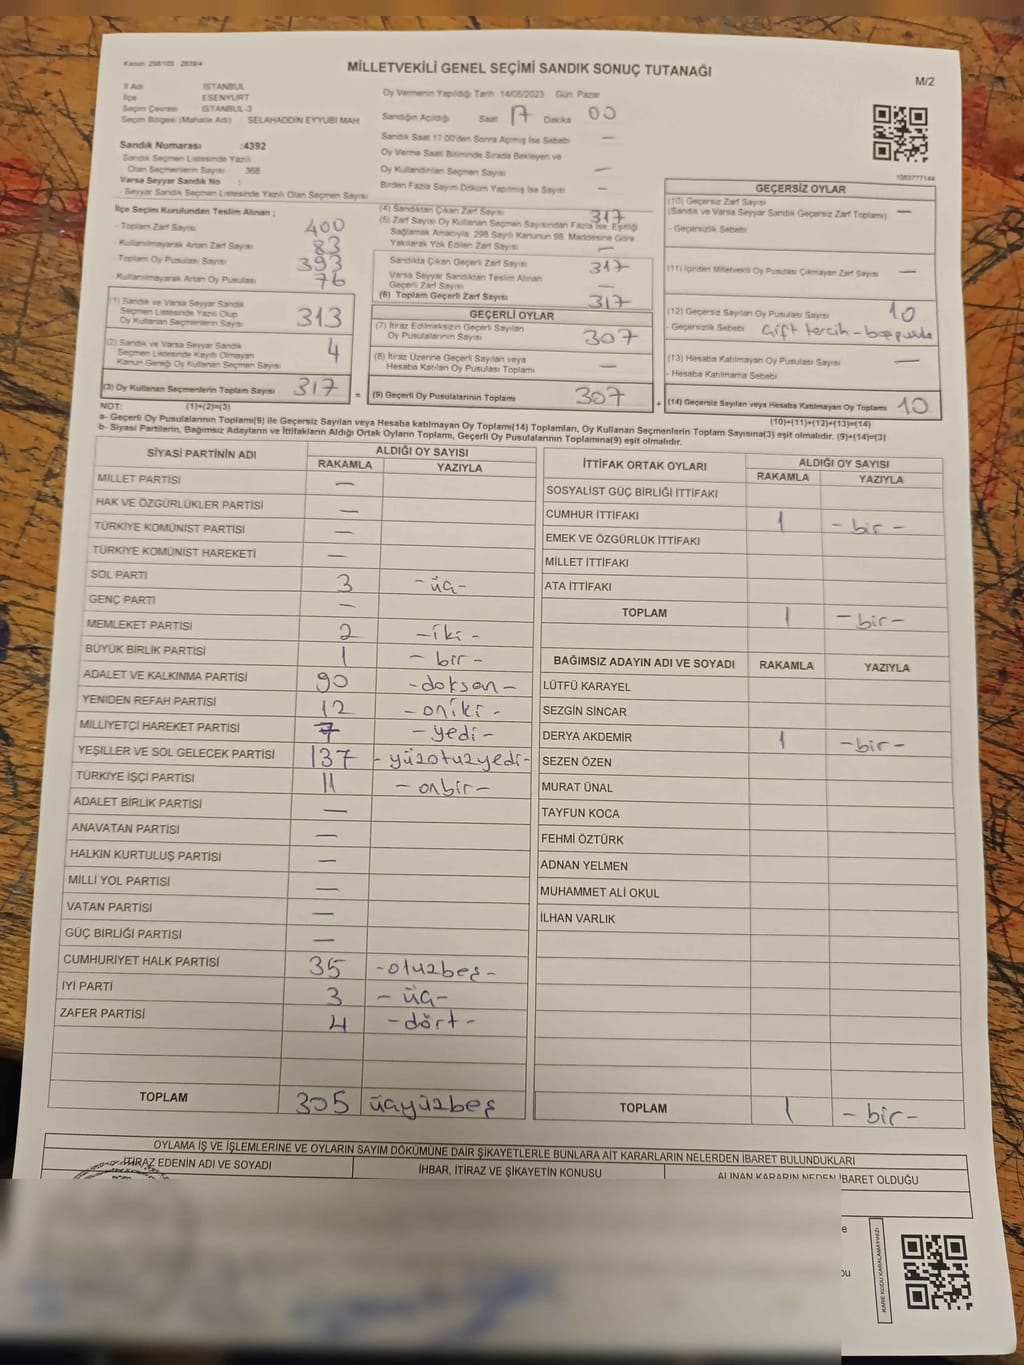 Kanun: 298/105 : 2839/4
MİLLETVEKİLİ GENEL SEÇİMİ SANDIK SONUÇ TUTANAĞI
M/2
İl Adı İSTANBUL
İlçe ESENYURT
Seçim Çevresi İSTANBUL-3
Seçim Bölgesi (Mahalle Adı) SELAHADDİN EYYUBİ MAH.
Oy Vermenin Yapıldığı Tarih 14/05/2023 Gün Pazar
Sandığın Açıldığı Saat 17 Dakika 00
Sandık Saat 17:00'den Sonra Açılmış İse Sebebi —
Oy Verme Saati Bitiminde Sırada Bekleyen ve
Oy Kullandırılan Seçmen Sayısı —
Birden Fazla Sayım Döküm Yapılmış İse Sayısı —
Sandık Numarası :4392
Sandık Seçmen Listesinde Yazılı
Olan Seçmenlerin Sayısı 368
Varsa Seyyar Sandık No :
- Seyyar Sandık Seçmen Listesinde Yazılı Olan Seçmen Sayısı
1083777144
İlçe Seçim Kurulundan Teslim Alınan ;
- Toplam Zarf Sayısı 400
- Kullanılmayarak Artan Zarf Sayısı 83
- Toplam Oy Pusulası Sayısı 393
- Kullanılmayarak Artan Oy Pusulası 76
(1) Sandık ve Varsa Seyyar Sandık
Seçmen Listesinde Yazılı Olup
Oy Kullanan Seçmenlerin Sayısı 313
(2) Sandık ve Varsa Seyyar Sandık
Seçmen Listesinde Kayıtlı Olmayan
Kanun Gereği Oy Kullanan Seçmen Sayısı 4
(3) Oy Kullanan Seçmenlerin Toplam Sayısı 317
(4) Sandıktan Çıkan Zarf Sayısı 317
(5) Zarf Sayısı Oy Kullanan Seçmen Sayısından Fazla İse, Eşitliği
Sağlamak Amacıyla, 298 Sayılı Kanunun 98. Maddesine Göre
Yakılarak Yok Edilen Zarf Sayısı —
Sandıkta Çıkan Geçerli Zarf Sayısı 317
Varsa Seyyar Sandıktan Teslim Alınan
Geçerli Zarf Sayısı —
(6) Toplam Geçerli Zarf Sayısı 317
GEÇERLİ OYLAR
(7) İtiraz Edilmeksizin Geçerli Sayılan
Oy Pusulalarının Sayısı 307
(8) İtiraz Üzerine Geçerli Sayılan veya
Hesaba Katılan Oy Pusulası Toplamı —
= (9) Geçerli Oy Pusulalarının Toplamı 307
GEÇERSİZ OYLAR
(10) Geçersiz Zarf Sayısı
(Sandık ve Varsa Seyyar Sandık Geçersiz Zarf Toplamı) —
- Geçersizlik Sebebi
(11) İçinden Milletvekili Oy Pusulası Çıkmayan Zarf Sayısı —
(12) Geçersiz Sayılan Oy Pusulası Sayısı 10
- Geçersizlik Sebebi Çift tercih -
(13) Hesaba Katılmayan Oy Pusulası Sayısı —
- Hesaba Katılmama Sebebi
+ (14) Geçersiz Sayılan veya Hesaba Katılmayan Oy Toplamı 10
NOT: (1)+(2)=(3)
(10)+(11)+(12)+(13)=(14)
a- Geçerli Oy Pusulalarının Toplamı(9) ile Geçersiz Sayılan veya Hesaba katılmayan Oy Toplamı(14) Toplamları, Oy Kullanan Seçmenlerin Toplam Sayısına(3) eşit olmalıdır. (9)+(14)=(3)
b- Siyasi Partilerin, Bağımsız Adayların ve İttifakların Aldığı Ortak Oyların Toplamı, Geçerli Oy Pusulalarının Toplamına(9) eşit olmalıdır.
SİYASİ PARTİNİN ADI ALDIĞI OY SAYISI
RAKAMLA YAZIYLA
MİLLET PARTİSİ —
HAK VE ÖZGÜRLÜKLER PARTİSİ —
TÜRKİYE KOMÜNİST PARTİSİ —
TÜRKİYE KOMÜNİST HAREKETİ —
SOL PARTİ 3 -üç-
GENÇ PARTİ —
MEMLEKET PARTİSİ 2 -iki-
BÜYÜK BİRLİK PARTİSİ 1 -bir-
ADALET VE KALKINMA PARTİSİ 90 -doksan-
YENİDEN REFAH PARTİSİ 12 -oniki-
MİLLİYETÇİ HAREKET PARTİSİ 7 -yedi-
YEŞİLLER VE SOL GELECEK PARTİSİ 137 -yüzotuzyedi-
TÜRKİYE İŞÇİ PARTİSİ 11 -onbir-
ADALET BİRLİK PARTİSİ —
ANAVATAN PARTİSİ —
HALKIN KURTULUŞ PARTİSİ —
MİLLİ YOL PARTİSİ —
VATAN PARTİSİ —
GÜÇ BİRLİĞİ PARTİSİ —
CUMHURİYET HALK PARTİSİ 35 -otuzbeş-
İYİ PARTİ 3 -üç-
ZAFER PARTİSİ 4 -dört-
TOPLAM 305 üçyüzbeş
İTTİFAK ORTAK OYLARI ALDIĞI OY SAYISI
RAKAMLA YAZIYLA
SOSYALİST GÜÇ BİRLİĞİ İTTİFAKI
CUMHUR İTTİFAKI 1 -bir-
EMEK VE ÖZGÜRLÜK İTTİFAKI
MİLLET İTTİFAKI
ATA İTTİFAKI
TOPLAM 1 -bir-
BAĞIMSIZ ADAYIN ADI VE SOYADI RAKAMLA YAZIYLA
LÜTFÜ KARAYEL
SEZGİN SİNCAR
DERYA AKDEMİR 1 -bir-
SEZEN ÖZEN
MURAT ÜNAL
TAYFUN KOCA
FEHMİ ÖZTÜRK
ADNAN YELMEN
MUHAMMET ALİ OKUL
İLHAN VARLIK
TOPLAM 1 -bir-
OYLAMA İŞ VE İŞLEMLERİNE VE OYLARIN SAYIM DÖKÜMÜNE DAİR ŞİKAYETLERLE BUNLARA AİT KARARLARIN NELERDEN İBARET BULUNDUKLARI
İTİRAZ EDENİN ADI VE SOYADI
İHBAR, İTİRAZ VE ŞİKAYETİN KONUSU
ALINAN KARARIN NEDEN İBARET OLDUĞU
KARE KODU KARALAMAYINIZ!